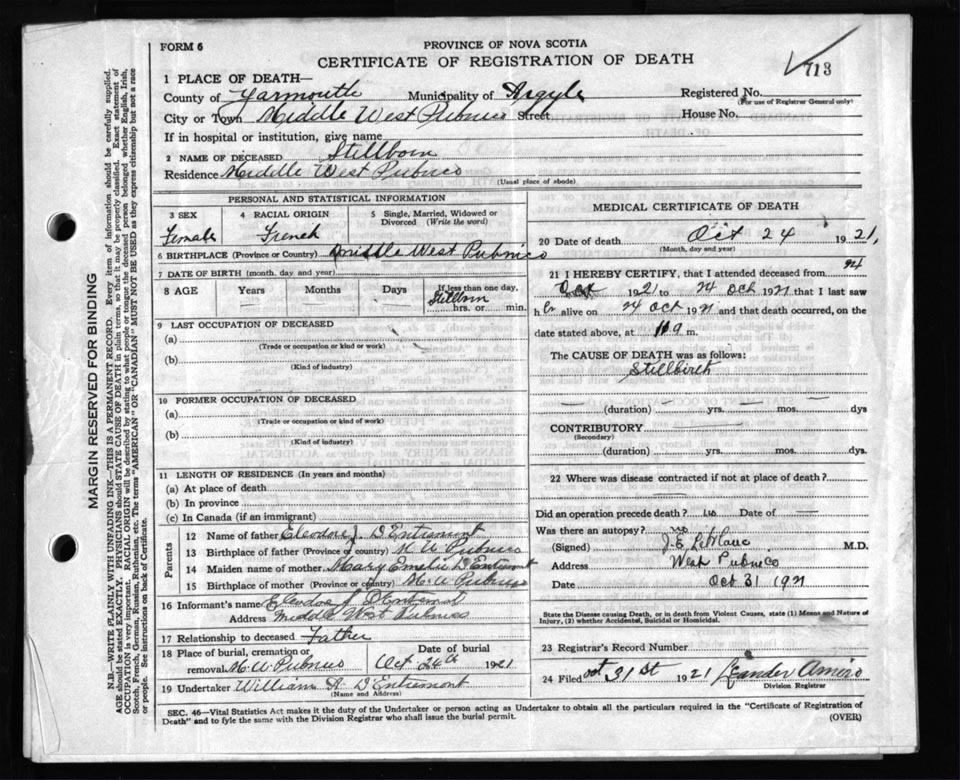 FORM 6
PROVINCE OF NOVA SCOTIA
CERTIFICATE OF REGISTRATION OF DEATH
713
1 PLACE OF DEATH—
County of Yarmouth Municipality of Argyle Registered No.
(For use of Registrar General only)
City or Town Middle West Pubnico Street House No.
If in hospital or institution, give name
2 NAME OF DECEASED Stillborn
Residence Middle West Pubnico
(Usual place of abode)
PERSONAL AND STATISTICAL INFORMATION
3 SEX 4 RACIAL ORIGIN 5 Single, Married, Widowed or Divorced (Write the word)
Female French
6 BIRTHPLACE (Province or Country) Middle West Pubnico
7 DATE OF BIRTH (month, day and year)
8 AGE Years Months Days If less than one day,
Stillborn
hrs. or min.
9 LAST OCCUPATION OF DECEASED
(a)
(Trade or occupation or kind or work)
(b)
(Kind of industry)
10 FORMER OCCUPATION OF DECEASED
(a)
(Trade or occupation or kind of work)
(b)
(Kind of industry)
11 LENGTH OF RESIDENCE (In years and months)
(a) At place of death
(b) In province
(c) In Canada (if an immigrant)
Parents
12 Name of father Eleodore J. D'Entremont
13 Birthplace of father (Province or country) M. W. Pubnico
14 Maiden name of mother Mary Emelie D'Entremont
15 Birthplace of mother (Province or country) M. W. Pubnico
16 Informant's name Eleodore J D'Entremont
Address Middle West Pubnico
17 Relationship to deceased Father
18 Place of burial, cremation or removal M. W. Pubnico Date of burial Oct 24th 1921
19 Undertaker William A D'Entremont
(Name and Address)
MEDICAL CERTIFICATE OF DEATH
20 Date of death Oct 24 1921,
(Month, day and year)
21 I HEREBY CERTIFY, that I attended deceased from 24
Oct 1921 to 24 Oct 1921 that I last saw
h er alive on 24 Oct 1921 and that death occurred, on the
date stated above, at m.
The CAUSE OF DEATH was as follows:
Stillbirth
(duration) yrs. mos. dys
CONTRIBUTORY
(Secondary)
(duration) yrs. mos. dys.
22 Where was disease contracted if not at place of death?
Did an operation precede death? no Date of
Was there an autopsy? no
(Signed) J. E. LeBlanc M.D.
Address West Pubnico
Date Oct 31 1921
State the Disease causing Death, or in death from Violent Causes, state (1) Means and Nature of Injury, (2) whether Accidental, Suicidal or Homicidal.
23 Registrar's Record Number
24 Filed Oct 31st 1921 Leander Amiro
Division Registrar
SEC. 46—Vital Statistics Act makes it the duty of the Undertaker or person acting as Undertaker to obtain all the particulars required in the "Certificate of Registration of
Death" and to fyle the same with the Division Registrar who shall issue the burial permit. (OVER)
MARGIN RESERVED FOR BINDING
N.B.—WRITE PLAINLY WITH UNFADING INK—THIS IS A PERMANENT RECORD. Every item of information should be carefully supplied.
AGE should be stated EXACTLY. PHYSICIANS should STATE CAUSE OF DEATH in plain terms, so that it may be properly classified. Exact statement of
OCCUPATION is very important. RACIAL ORIGIN will be described by stating to what people or tongue the deceased person belonged whether English, Irish,
Scotch, French, German, Russian, Ruthenian, etc. The terms "AMERICAN" OR "CANADIAN" MUST NOT BE USED as they express citizenship but not a race
or people. See instructions on back of Certificate.